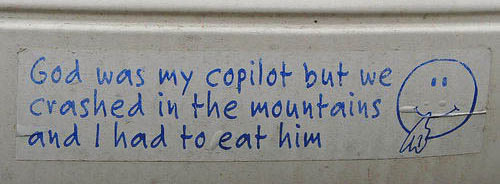 God was my copilot but we
crashed in the mountains
and I had to eat him